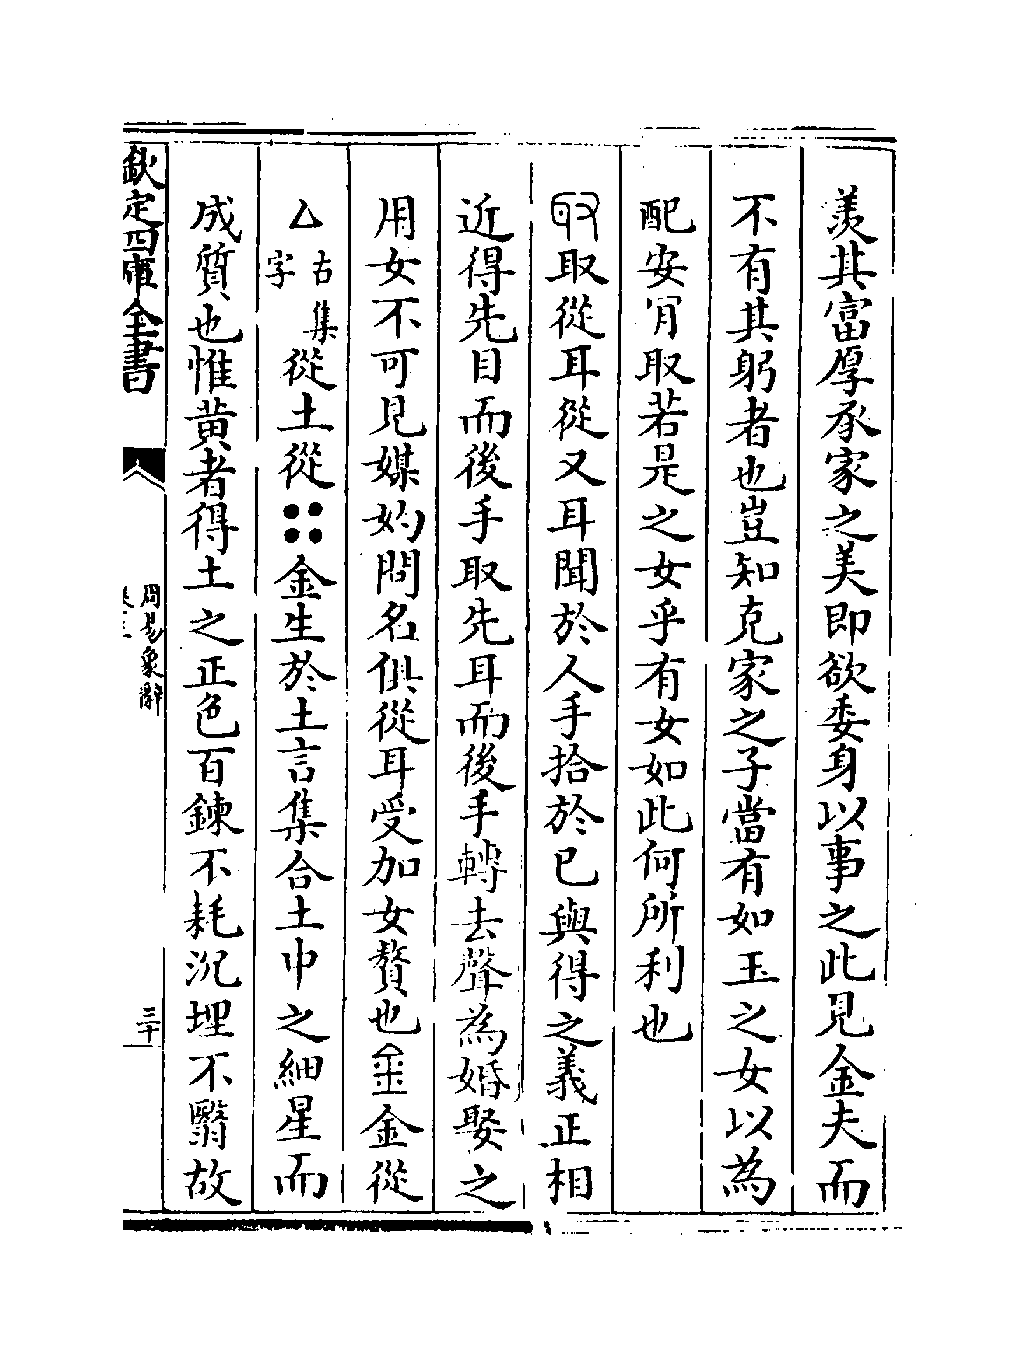 羨其富厚承家之美即欲委身以事之此見金夫而
不有其躬者也豈知克家之子當有如玉之女以為
配安肎取若是之女乎有女如此何所利也
取從耳從又耳聞於人手拾於已與得之義正相
近得先目而後手取先耳而後手轉去聲為婚娶之
用女不可見媒妁問名俱從耳受加女贅也金金從
亼古集字從土從金生於土言集合土中之細星而
成質也惟黄者得土之正色百鍊不耗沉埋不翳故
欽定四庫全書
周易象辭
三十